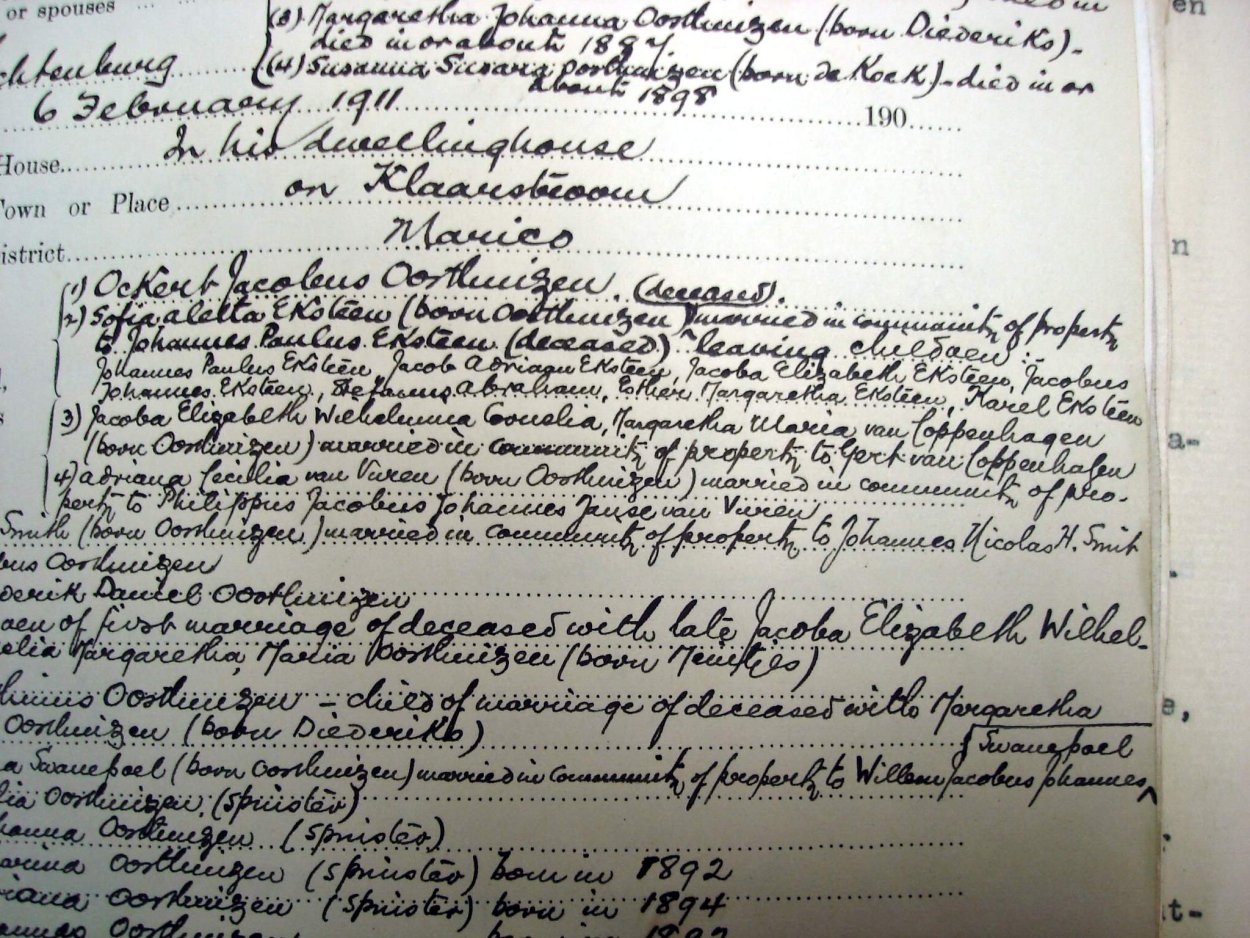 or spouses
(3) Margaretha Johanna Oosthuizen (born Diederiks) -
died in or about 1887.
chtenburg (4) Susanna Susara Oosthuizen (born de Kock) - died in or
about 1898
6 February 1911 190
House In his dwellinghouse
Town or Place on Klaarstroom
istrict Marico
1) Ockert Jacobus Oosthuizen (deceased).
2) Sofia aletta Eksteen (born Oosthuizen) married in community of property
to Johannes Paulus Eksteen (deceased) leaving children :-
Johannes Paulus Eksteen, Jacob Adriaan Eksteen, Jacoba Elizabeth Eksteen, Jacobus
Johannes Eksteen, Stefanus Abraham, Esther Margaretha Eksteen, Karel Eksteen
3) Jacoba Elizabeth Wilhelmina Cornelia, Margaretha Maria van Coppenhagen
(born Oosthuizen) married in community of property to Gert van Coppenhagen
4) adriana Cecilia van Vuren (born Oosthuizen) married in community of pro-
perty to Philippus Jacobus Johannes Janse van Vuren
Smith (born Oosthuizen) married in community of property to Johannes Nicolas H. Smit
bus Oosthuizen
derik Daniel Oosthuizen
of first marriage of deceased with late Jacoba Elizabeth Wilhel-
elia Margaretha Maria Oosthuizen (born Meintjes)
Oosthuizen - child of marriage of deceased with Margaretha
Oosthuizen (born Diederiks)
Swanepoel
a Swanepoel (born Oosthuizen) married in community of property to Willem Jacobus Johannes
lia Oosthuizen (spinster)
hanna Oosthuizen (spinster)
arina Oosthuizen (spinster) born in 1892
riana Oosthuizen (spinster) born in 1894
en
n
a-
e,
t-